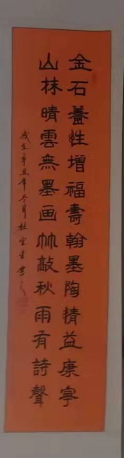 金石養性增福壽翰墨陶情益康寧
山林晴雲無墨画竹敲秋雨有詩聲